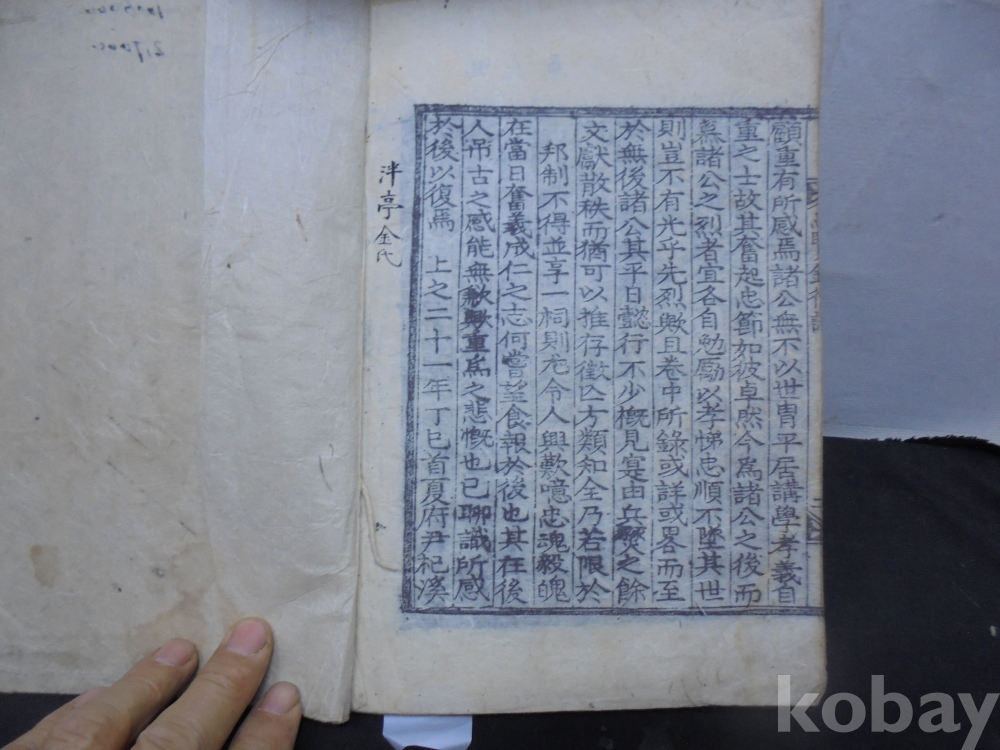 顧重有所感焉諸公無不以世冑平居講學孝義自
重之士故其奮起忠節如彼卓然今爲諸公之後而
慕諸公之烈者宜各自勉勵以孝悌忠順不墜其世
則豈不有光乎先烈歟且卷中所錄或詳或畧而至
於無後諸公其平日懿行不少槪見寔由兵燹之餘
文獻散秩而猶可以推存徵亾方類知全乃若限於
邦制不得並享一祠則尤令人興歎噫忠魂毅魄
在當日奮義成仁之志何嘗望食報於後也其在後
人吊古之感能無歉歟重爲之悲慨也已聊識所感
於後以復焉 上之二十一年丁巳首夏府尹杞溪
泮亭金氏
kobay